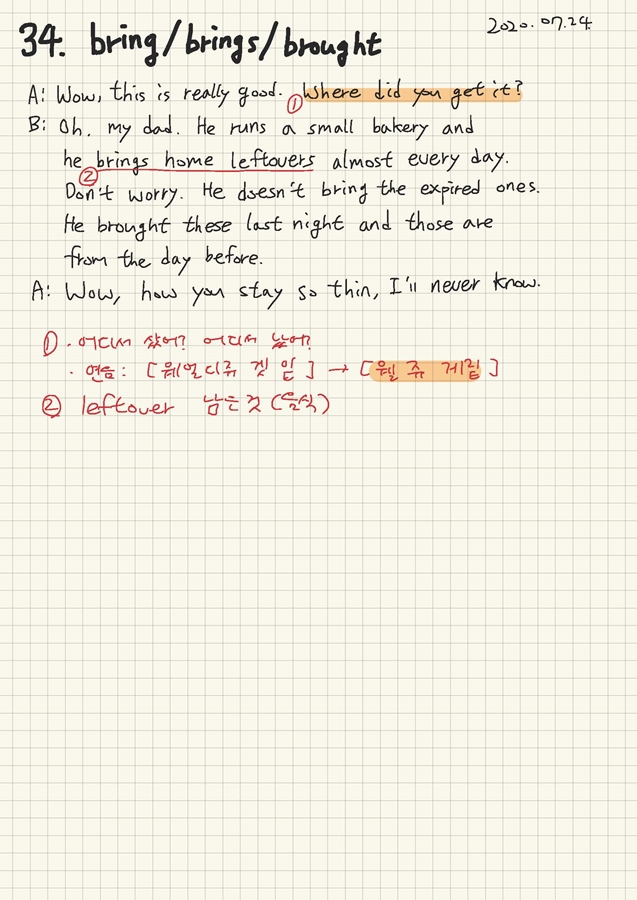 34. bring/brings/brought
2020.07.24.
A: Wow, this is really good. ① Where did you get it?
B: Oh. my dad. He runs a small bakery and
he ② brings home leftovers almost every day.
Don't worry. He doesn't bring the expired ones.
He brought these last night and those are
from the day before.
A: Wow, how you stay so thin, I'll never know.
① · 어디서 샀어? 어디서 났어?
· 연음: [웨얼디쥬 겟 잍] → [웰 쥬 게맅]
② leftover 남은 것 (음식)